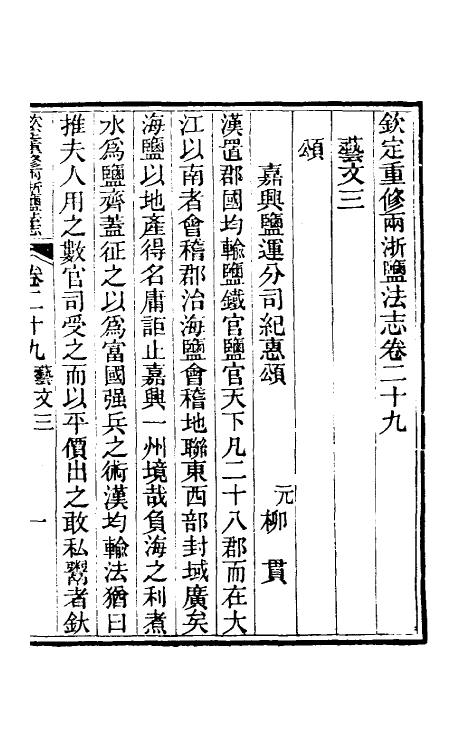 欽定重修兩浙鹽法志卷二十九
藝文三
頌
嘉興鹽運分司紀惠頌 元 柳 貫
漢置郡國均輸鹽鐵官鹽官天下凡二十八郡而在大
江以南者會稽郡治海鹽會稽地聯東西部封域廣矣
海鹽以地產得名庸詎止嘉興一州境哉負海之利煮
水為鹽齊蓋征之以為富國强兵之術漢均輸法猶曰
推夫人用之數官司受之而以平價出之敢私鬻者釱
欽定重修兩浙鹽法志 卷二十九 藝文三 一